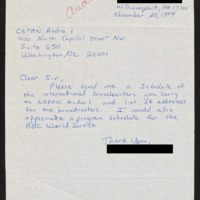 Williamsport, PA 17701
November 20, 1994
CSPAN Audio 1
400 North Capitol Street NW
Suite 650
Washington, DC 20001
Dear Sir,
Please send me a schedule of
the international broadcasters you carry
on CSPAN Audio 1 and list of addresses
for the broadcasters. I would also
appreciate a program schedule for the
BBC World Service
Thank You,